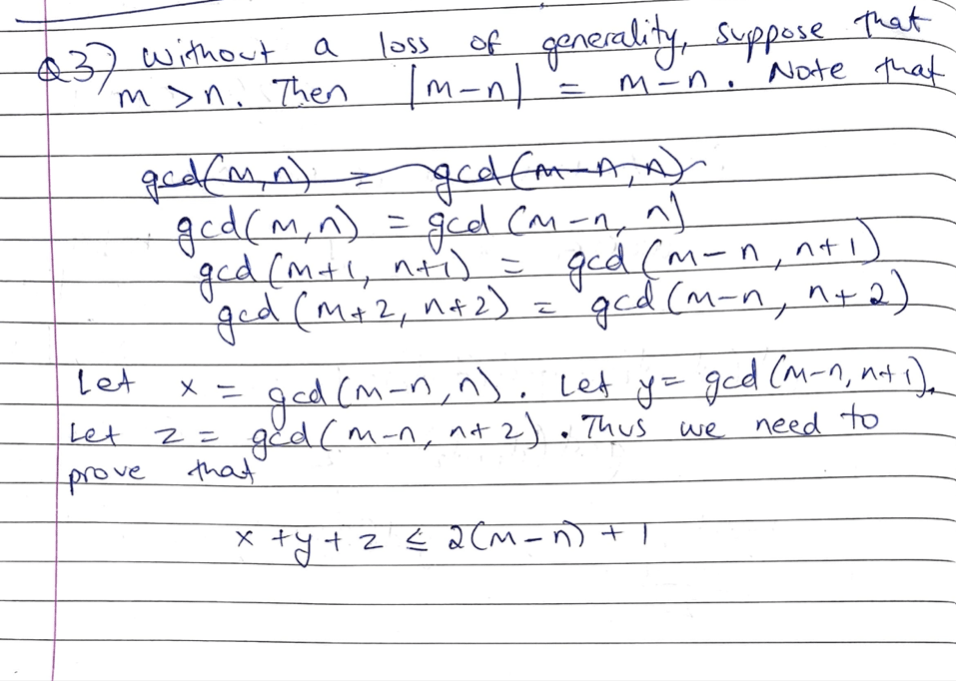 Q3) Without a loss of generality, suppose that
m > n. Then |m-n| = m-n. Note that
gcd(m,n) = gcd(m-n,n)
gcd(m,n) = gcd (m-n, n)
gcd (m+1, n+1) = gcd (m-n, n+1)
gcd (m+2, n+2) = gcd (m-n, n+2)
Let x = gcd(m-n, n). Let y = gcd (m-n, n+1).
Let z = gcd(m-n, n+2). Thus we need to
prove that
x + y + z ≤ 2(m-n) + 1